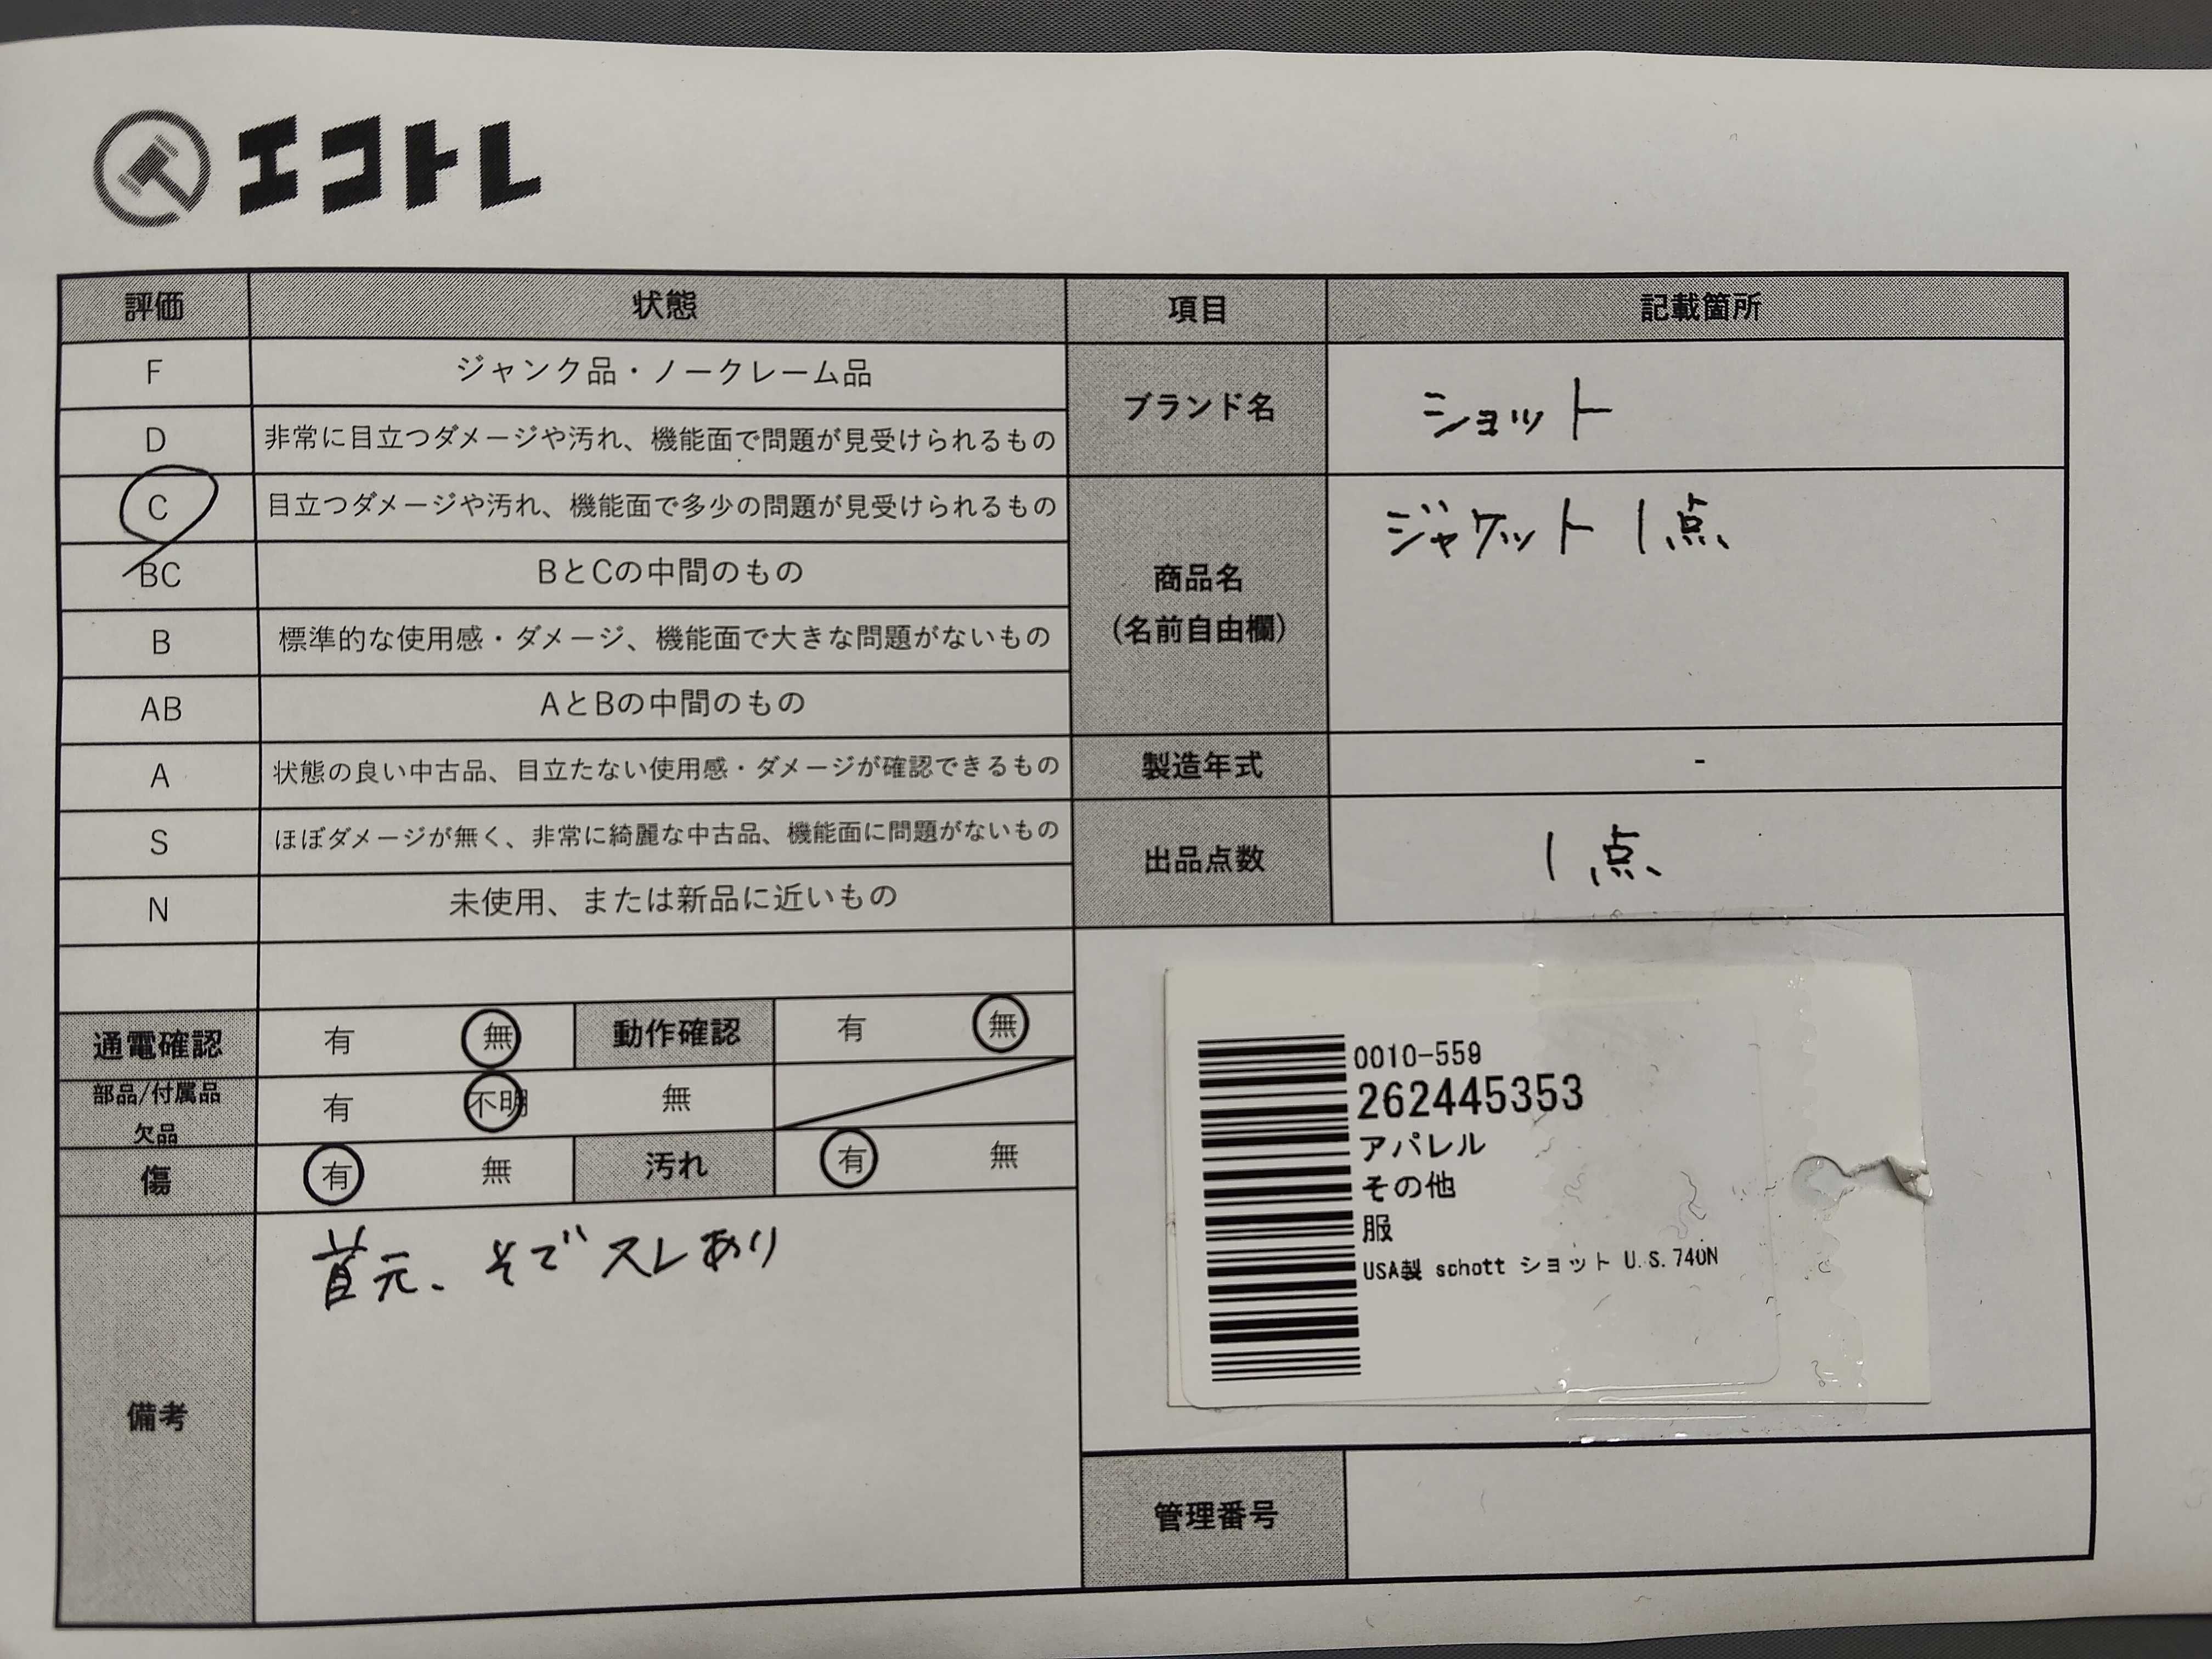 エコトレ
評価 状態 項目 記載箇所
F ジャンク品・ノークレーム品
D 非常に目立つダメージや汚れ、機能面で問題が見受けられるもの
C 目立つダメージや汚れ、機能面で多少の問題が見受けられるもの
BC BとCの中間のもの
B 標準的な使用感・ダメージ、機能面で大きな問題がないもの
AB AとBの中間のもの
A 状態の良い中古品、目立たない使用感・ダメージが確認できるもの
S ほぼダメージが無く、非常に綺麗な中古品、機能面に問題がないもの
N 未使用、または新品に近いもの
ブランド名 ショット
商品名
(名前自由欄)
ジャケット 1点
製造年式 -
出品点数 1点
通電確認 有 無 動作確認 有 無
部品/付属品
欠品
有 不明 無
傷 有 無 汚れ 有 無
備考 首元、そでスレあり
0010-559
262445353
アパレル
その他
服
USA製 schott ショット U.S.740N
管理番号